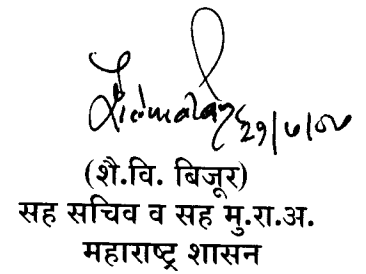 (शै.वि. बिजूर)
सह सचिव व सह मु.रा.अ.
महाराष्ट्र शासन